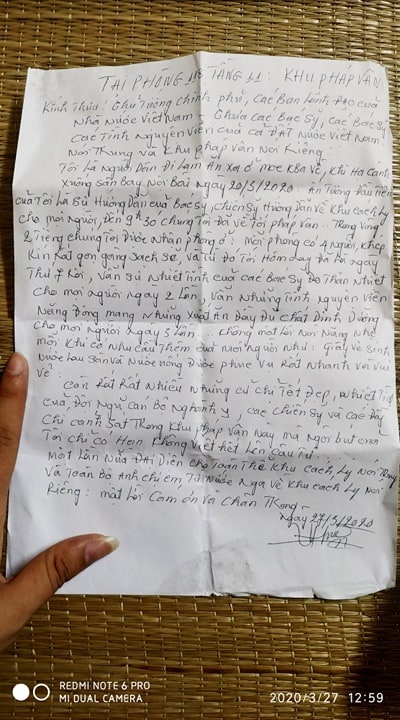 TẠI PHÒNG 118 TẦNG 11: KHU PHÁP VÂN
Kính Thưa: Thủ Tướng Chính phủ, Các Ban Lãnh Đạo của
Nhà Nước Việt Nam: Thưa Các Bác Sỹ, Các Bác Sỹ
Các Tình Nguyện Viên của cả Đất Nước Việt Nam
Nói Chung và Khu pháp Vân Nói Riêng:
Tôi Là Người Dân Đi Làm Ăn Xa ở MOCKBA Về, Khi Hạ Cánh
Xuống Sân Bay Nội Bài Ngày 20/3/2020 Ấn Tượng Đầu Tiên
của Tôi Là Sự Hướng Dẫn của Bác Sỹ, Chiến Sỹ Hướng Dẫn về Khu Cách Ly
cho mọi người, Đến 9h 30' Chúng Tôi Đã Về Tới pháp Vân. Trong Vòng
2 Tiếng Chúng Tôi Được Nhận phòng ở: mỗi phòng có 4 Người, Khép
Kín Rất gọn gàng Sạch Sẽ, và Từ Đó Tới Hôm Nay Đã là ngày
Thứ 7 Rồi, Vẫn Sự Nhiệt Tình của các Bác Sỹ Đo Thân Nhiệt
cho mọi người ngày 2 Lần Vẫn Những Tình Nguyện Viên
Năng Động mang Những Xuất Ăn Đầy Đủ Chất Dinh Dưỡng
cho mọi người ngày 3 Lần. Không một Lời Nói Nặng Nhẹ
mỗi Khi có Nhu Cầu Thêm của mọi người như: giấy Vệ Sinh
Nước Lau Sàn Và Nước nóng Được phục vụ Rất Nhanh Và Vui
Vẻ:
Còn Rất Rất Nhiều Những cử chỉ Tốt Đẹp, Nhiệt Tình
của Đội Ngũ Cán Bộ Nghành y, các chiến Sỹ và Các
Chí Cảnh Sát Trong Khu pháp Vân Này mà ngòi bút của
Tôi Chỉ Có Hạn Không Viết hết Lên Câu Từ.
Một Lần Nữa Đại Diện cho Toàn Thể Khu Cách Ly Nói Chung
Và Toàn Bộ Anh chị em Từ Nước Nga Về Khu Cách Ly Nói
Riêng: một Lời Cảm ơn Và Chân Trọng.
Ngày 27/3/2020
REDMI NOTE 6 PRO
MI DUAL CAMERA
2020/3/27 12:59